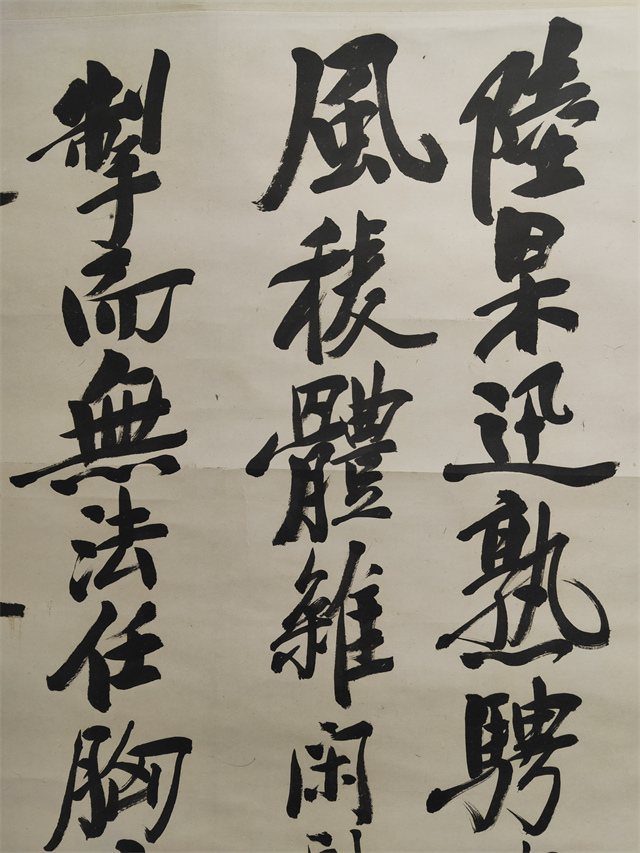 陸杲迅熟騁
風稜體雜閑
掣而無法任胸